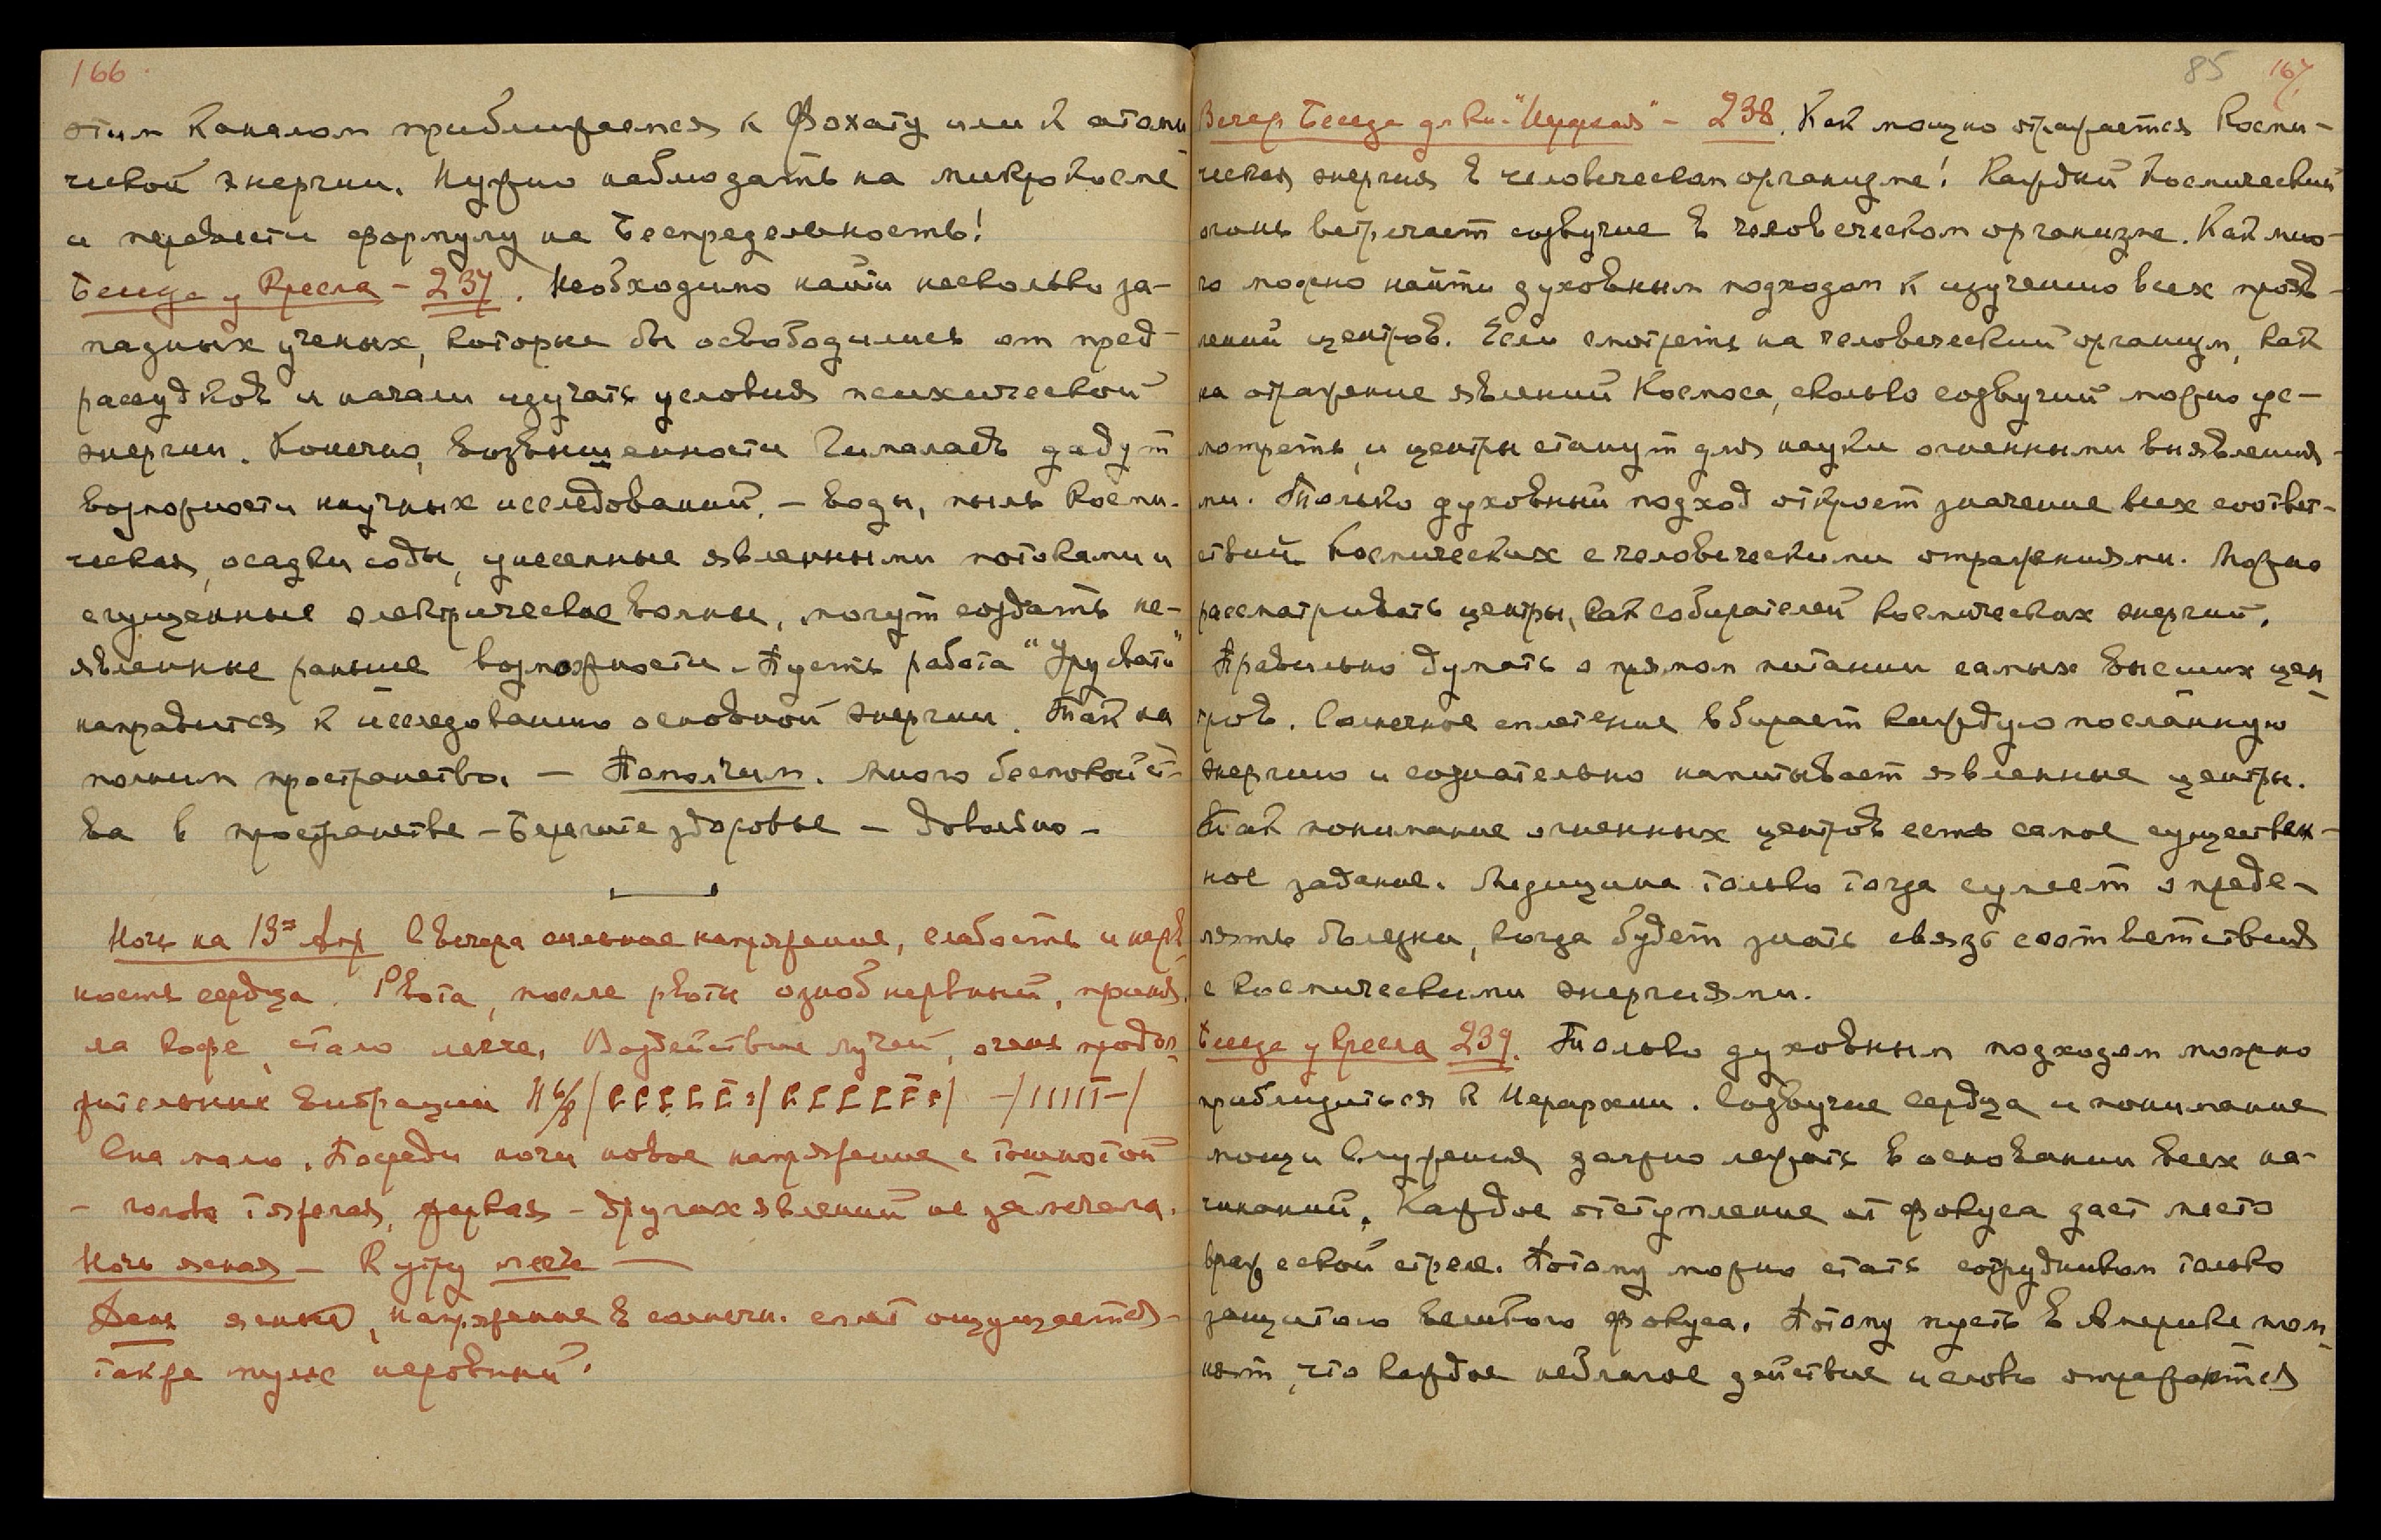 166.
этим каналом приближаемся к Фохату или к атоми-
ческой энергии. Нужно наблюдать на микрокосме
и перевести формулу на Беспредельность!
Беседа у Кресла – 237. Необходимо найти несколько за-
падных ученых, которые бы освободились от пред-
рассудков и начали изучать условия психической
энергии. Конечно, возвышенности Гималаев дадут
возможности научных исследований. – воды, пыль косми-
ческая, осадки соды, унесенные явленными потоками и
сгущенные электрические волны, могут создать не-
явленные раньше возможности. Пусть работа "Урусвати"
направится к исследованию основной энергии. Так на
полним пространство. – Помолчим. Много беспокойст-
ва в пространстве – Берегите здоровье – Довольно –
Ночь на 13ое Апр С вечера сильное напряжение, слабость и нерв
ность сердца. Рвота, после рвоты озноб нервный, приня-
ла кофе, стало легче. Воздействие лучей, очень продол
жительные вибрации
Сна мало. Посреди ночи новое напряжение с тошнотой
– голова тяжелая, – других явлений не замечала.
Ночь ясная – К утру легче –
День ясный, напряжение в солнечн. сплет ощущается –
также пульс неровный.
85 167
Вечер Беседа для кн. "Иерархия" – 238. Как мощно отражается косми-
ческая энергия в человеческом организме! Каждый космический
огонь встречает созвучие в человеческом организме. Как мно-
го можно найти духовным подходом к изучению всех прояв-
лений центров. Если смотреть на человеческий организм, как
на отражение явлений Космоса, сколько созвучий можно ус-
мотреть, и центры станут для науки огненными выявления-
ми. Только духовный подход откроет значение всех соответ-
ствий космических с человеческими отражениями. Можно
рассматривать центры, как собирателей космических энергий.
Правильно думать о прямом питании самых высших цен
тров. Солнечное сплетение вбирает каждую посланную
энергию и сознательно напитывает явленные центры.
Так понимание огненных центров есть самое существен-
ное задание. Медицина только тогда сумеет опреде-
лять болезни, когда будет знать связь соответствия
с космическими энергиями.
Беседа у Кресла 239. Только духовным подходом можно
приблизиться к Иерархии. Созвучие сердца и понимание
мощи Служения должно лежать в основании всех на-
чинаний. Каждое отступление от фокуса дает место
вражеской стреле. Потому можно стать сотрудником только
защитою великого Фокуса. Потому пусть в Америке пом
нят, что каждое неблагое действие и слово отражается